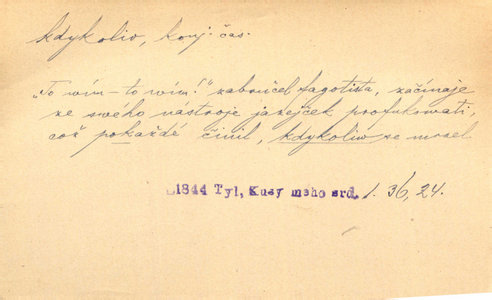 kdykoliv, konj. čas.
„To wím – to wím!" zabručel fagotista, začínaje
ze swého nástroje jazejček profukowati,
což pokaždé činil, kdykoliw se musel
1844 Tyl, Kusy mého srd. 1. 36, 24.